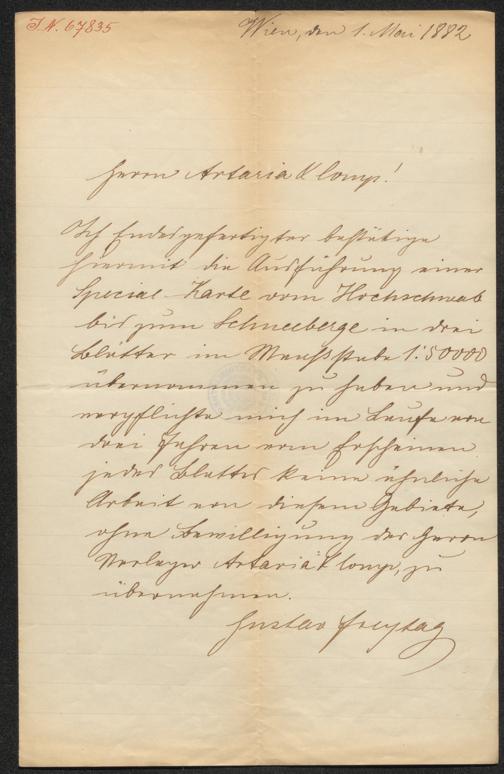 J. N. 67835
Wien, den 1. Mai 1882
Herrn Artaria & Comp!
Ich Endesgefertigter bestätige
hiermit die Ausführung einer
Special-Karte vom Hochschwab
bis zum Schneeberge in drei
Blätter im Maaßstabe 1:50000
übernommen zu haben und
verpflichte mich im Laufe von
drei Jahren vom Erscheinen
jedes Blattes keine ähnliche
Arbeit von diesem Gebiete,
ohne Bewilligung der Herren
Verleger Artaria & Comp, zu
übernehmen.
Gustav Freytag